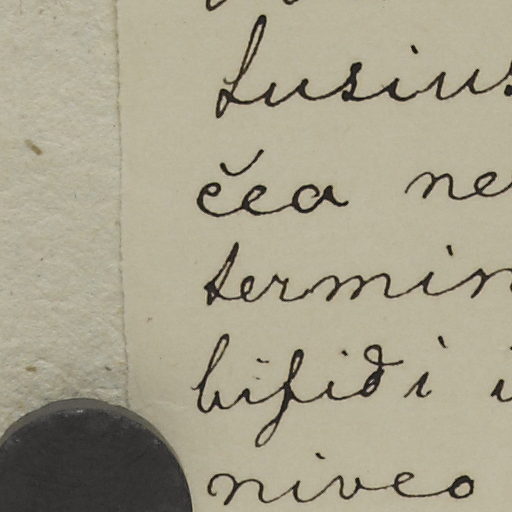 Lusius
čea ne
termin
bifiđi i
niveo